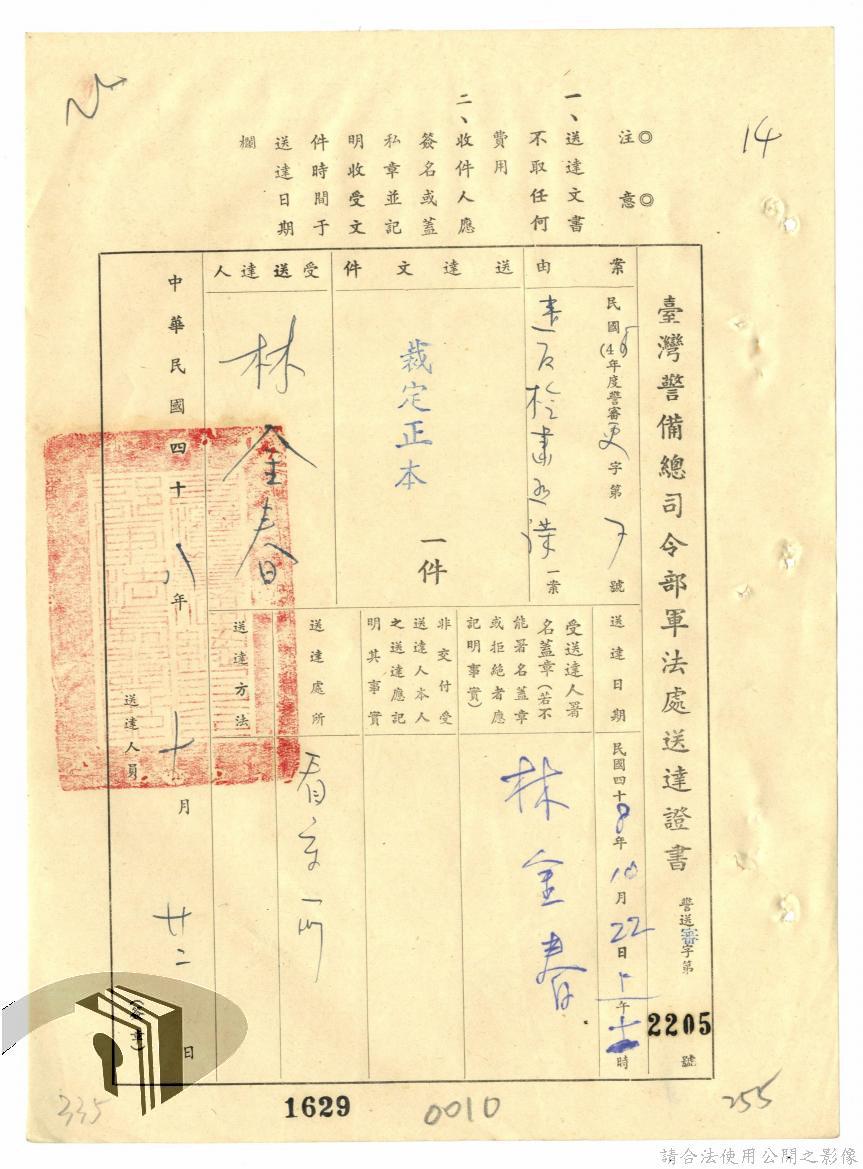 14
◎注意◎
一、送達文書
不取任何
費用
二、收件人應
簽名或蓋
私章並記
明收受文
件時間于
送達日期
欄
臺灣警備總司令部軍法處送達證書
警送審字第2205號
案由
民國(48年度警審更字第7號
違反檢肅匪諜一案
送達文件
裁定正本
一件
受送達人
林金春
送達日期
民國四十8年10月22日下午十時
受送達人署
名蓋章(若不
能署名蓋章
或拒絕者應
記明事實)
林金春
非交付受
送達人本人
之送達應記
明其事實
送達處所
看守所
送達方法
中華民國四十八年十月廿二日
送達人員
(簽章)
335
1629
0010
255
請合法使用公開之影像